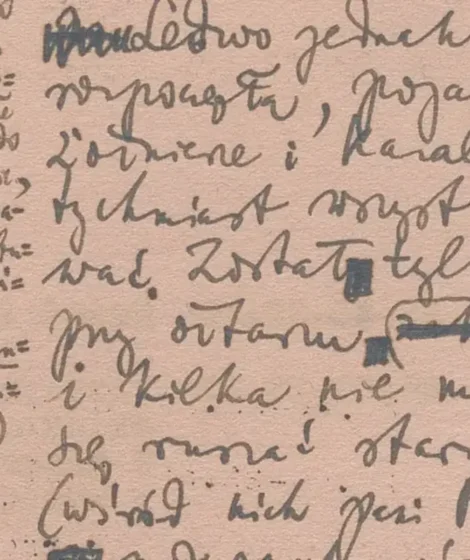 Ledwo jednak
rozpoczęła, poja
żołnierze i kara
tychmiast wszyst
wać. Został tyl
przy ołtarzu
i kilka nie m
się ruszać star
(wśród nich pani